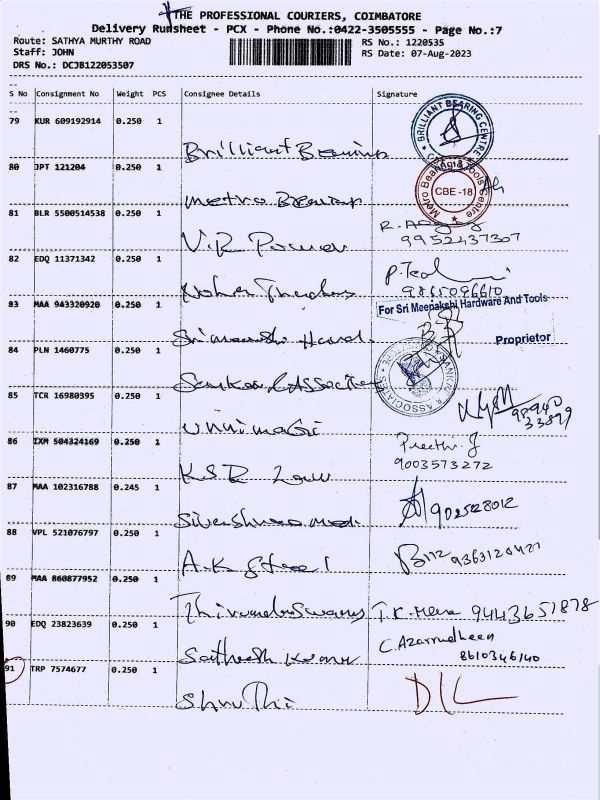 THE PROFESSIONAL COURIERS, COIMBATORE
Delivery Runsheet - PCX - Phone No.:0422-3505555 - Page No.:7
Route: SATHYA MURTHY ROAD RS No.: 1220535
Staff: JOHN RS Date: 07-Aug-2023
DRS No.: DCJB122053507
S No Consignment No Weight PCS Consignee Details Signature
79 KUR 609192914 0.250 1
Brilliant Bearing
BRILLIANT BEARING CENTRE
80 JPT 121204 0.250 1
Metro Bearing
Metro Bearing & Tools Centre
CBE-18
81 BLR 5500514538 0.250 1
V.R Power
9952437307
82 EDQ 11371342 0.250 1
9865096610
83 MAA 943320920 0.250 1
For Sri Meenakshi Hardware And Tools
Proprietor
84 PLN 1460775 0.250 1
& ASSOCIATES
85 TCR 16980395 0.250 1
Unimagic
33899
86 IXM 504324169 0.250 1
KSR
Preethi J
9003573272
87 MAA 102316788 0.245 1
88 VPL 521076797 0.250 1
A.K Steel
89 MAA 860877952 0.250 1
T.K. Meena 9443651878
90 EDQ 23823639 0.250 1
Satheesh Kumar
C. Azarrudheen
8610346140
91 TRP 7574677 0.250 1
Shruthi